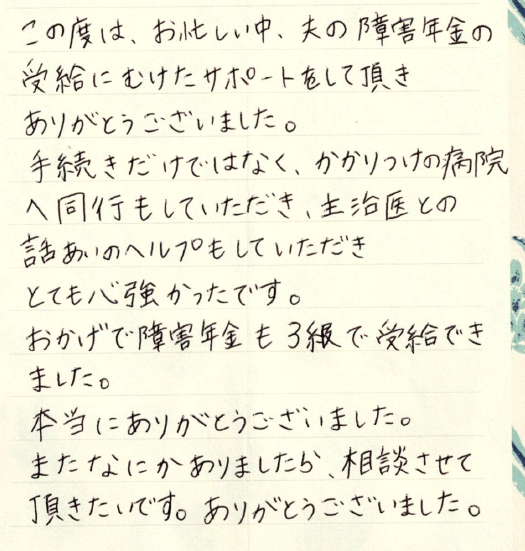 この度は、お忙しい中、夫の障害年金の
受給にむけたサポートをして頂き
ありがとうございました。
手続きだけではなく、かかりつけの病院
へ同行もしていただき、主治医との
話あいのヘルプもしていただき
とても心強かったです。
おかげで障害年金も3級で受給でき
ました。
本当にありがとうございました。
またなにかありましたら、相談させて
頂きたいです。ありがとうございました。